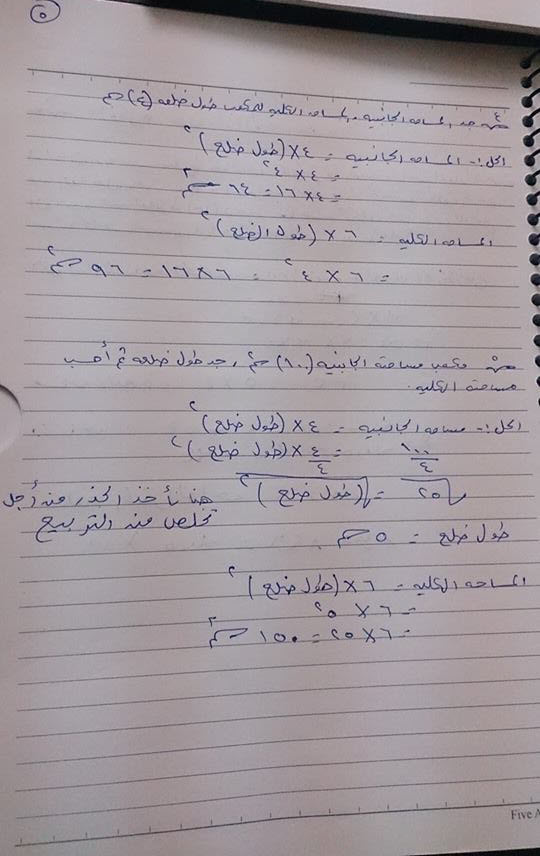 ٥
س٤ جد المساحه الجانبيه والمساحه الكليه لمكعب طول ضلعه (٤) سم
الحل :- المساحه الجانبيه = ٤ × (طول ضلع)٢
= ٤ × ٤٢
= ٤ × ١٦ = ٦٤ سم٢
المساحه الكليه = ٦ × (طول الضلع)٢
= ٦ × ٤٢ = ٦ × ١٦ = ٩٦ سم٢
مكعب مساحتة الجانبيه (١٠٠) سم٢ ، جد طول ضلعه ثم أحسب
مساحتة الكليه.
الحل :- مساحه الجانبيه = ٤ × (طول ضلع)٢
١٠٠/٤ = ٤/٤ × (طول ضلع)٢
√٢٥ = √(طول ضلع)٢ هنا نأخذ الجذر من أجل
تخلص من التربيع
طول ضلع = ٥ سم
المساحه الكليه = ٦ × (طول ضلع)٢
= ٦ × ٥٢
= ٦ × ٢٥ = ١٥٠ سم٢
Five